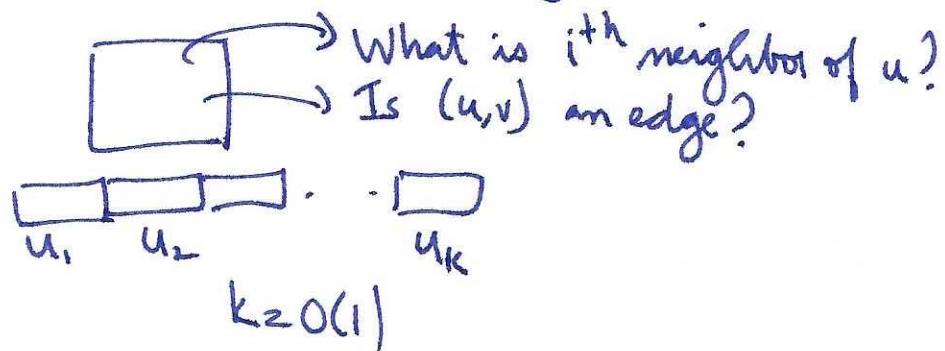 What is ith neighbor of u?
Is (u,v) an edge?
u1 u2 . . uk
k=O(1)